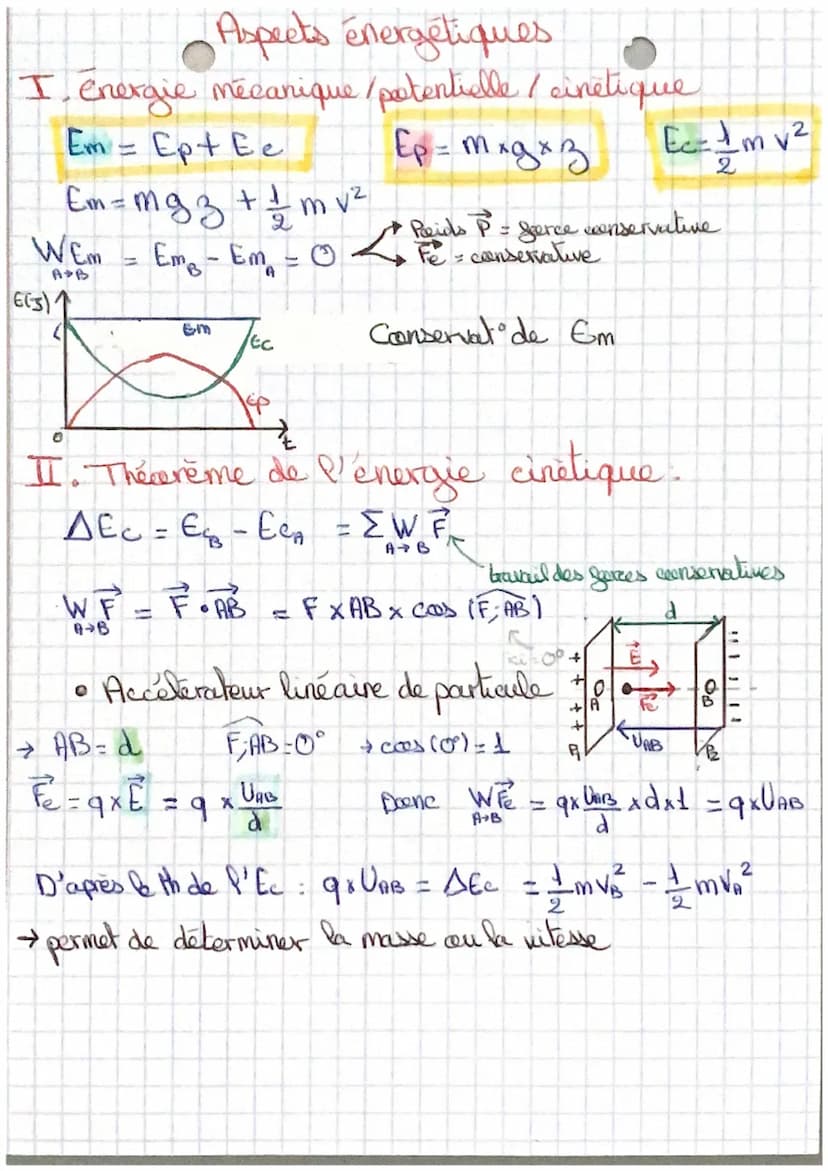 Aspects énergétiques
I. Énergie mécanique / potentielle / cinétique
Em = Ep + Ec
Ep = m x g x z
Ec = 1/2 m v²
Em = mgz + 1/2 m v²
W Em A→B = Em_B - Em_A = 0
→ Poids P⃗ = force conservative
→ F⃗e = conservative
E(J)
Em
Ec
Ep
0
t
Conservat° de Em
II. Théorème de l'énergie cinétique :
ΔEc = Ec_B - Ec_A = Σ W F⃗ A→B
travail des forces conservatives
W F⃗ A→B = F⃗ • AB⃗ = F x AB x cos (F; AB)
• Accélérateur linéaire de particule
d
E⃗
F⃗e
A
B
U_AB
→ AB = d F; AB = 0° → cos(0°) = 1
F⃗e = q x E⃗ = q x U_AB/d Donc W F⃗e A→B = q x U_AB/d x d x 1 = q x U_AB
D'après le th de l'Ec : q x U_AB = ΔEc = 1/2 m v_B² - 1/2 m v_A²
→ permet de déterminer la masse ou la vitesse